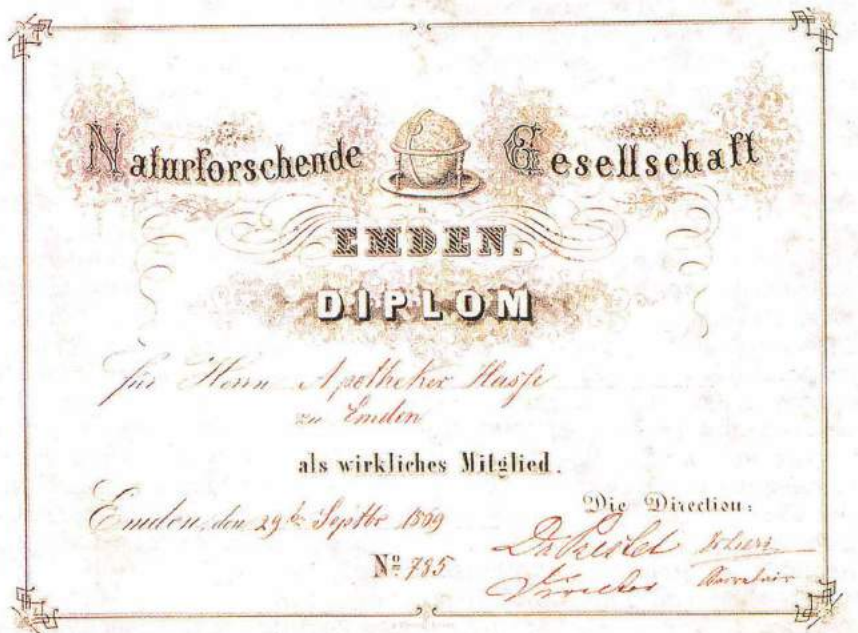 Naturforschende Gesellschaft
in
EMDEN.
DIPLOM
für Herrn Apotheker Hasse
zu Emden
als wirkliches Mitglied.
Emden, den 29ten Septbr 1869
Die Direction:
Nº 785
Dr Prestel
Director Secretair